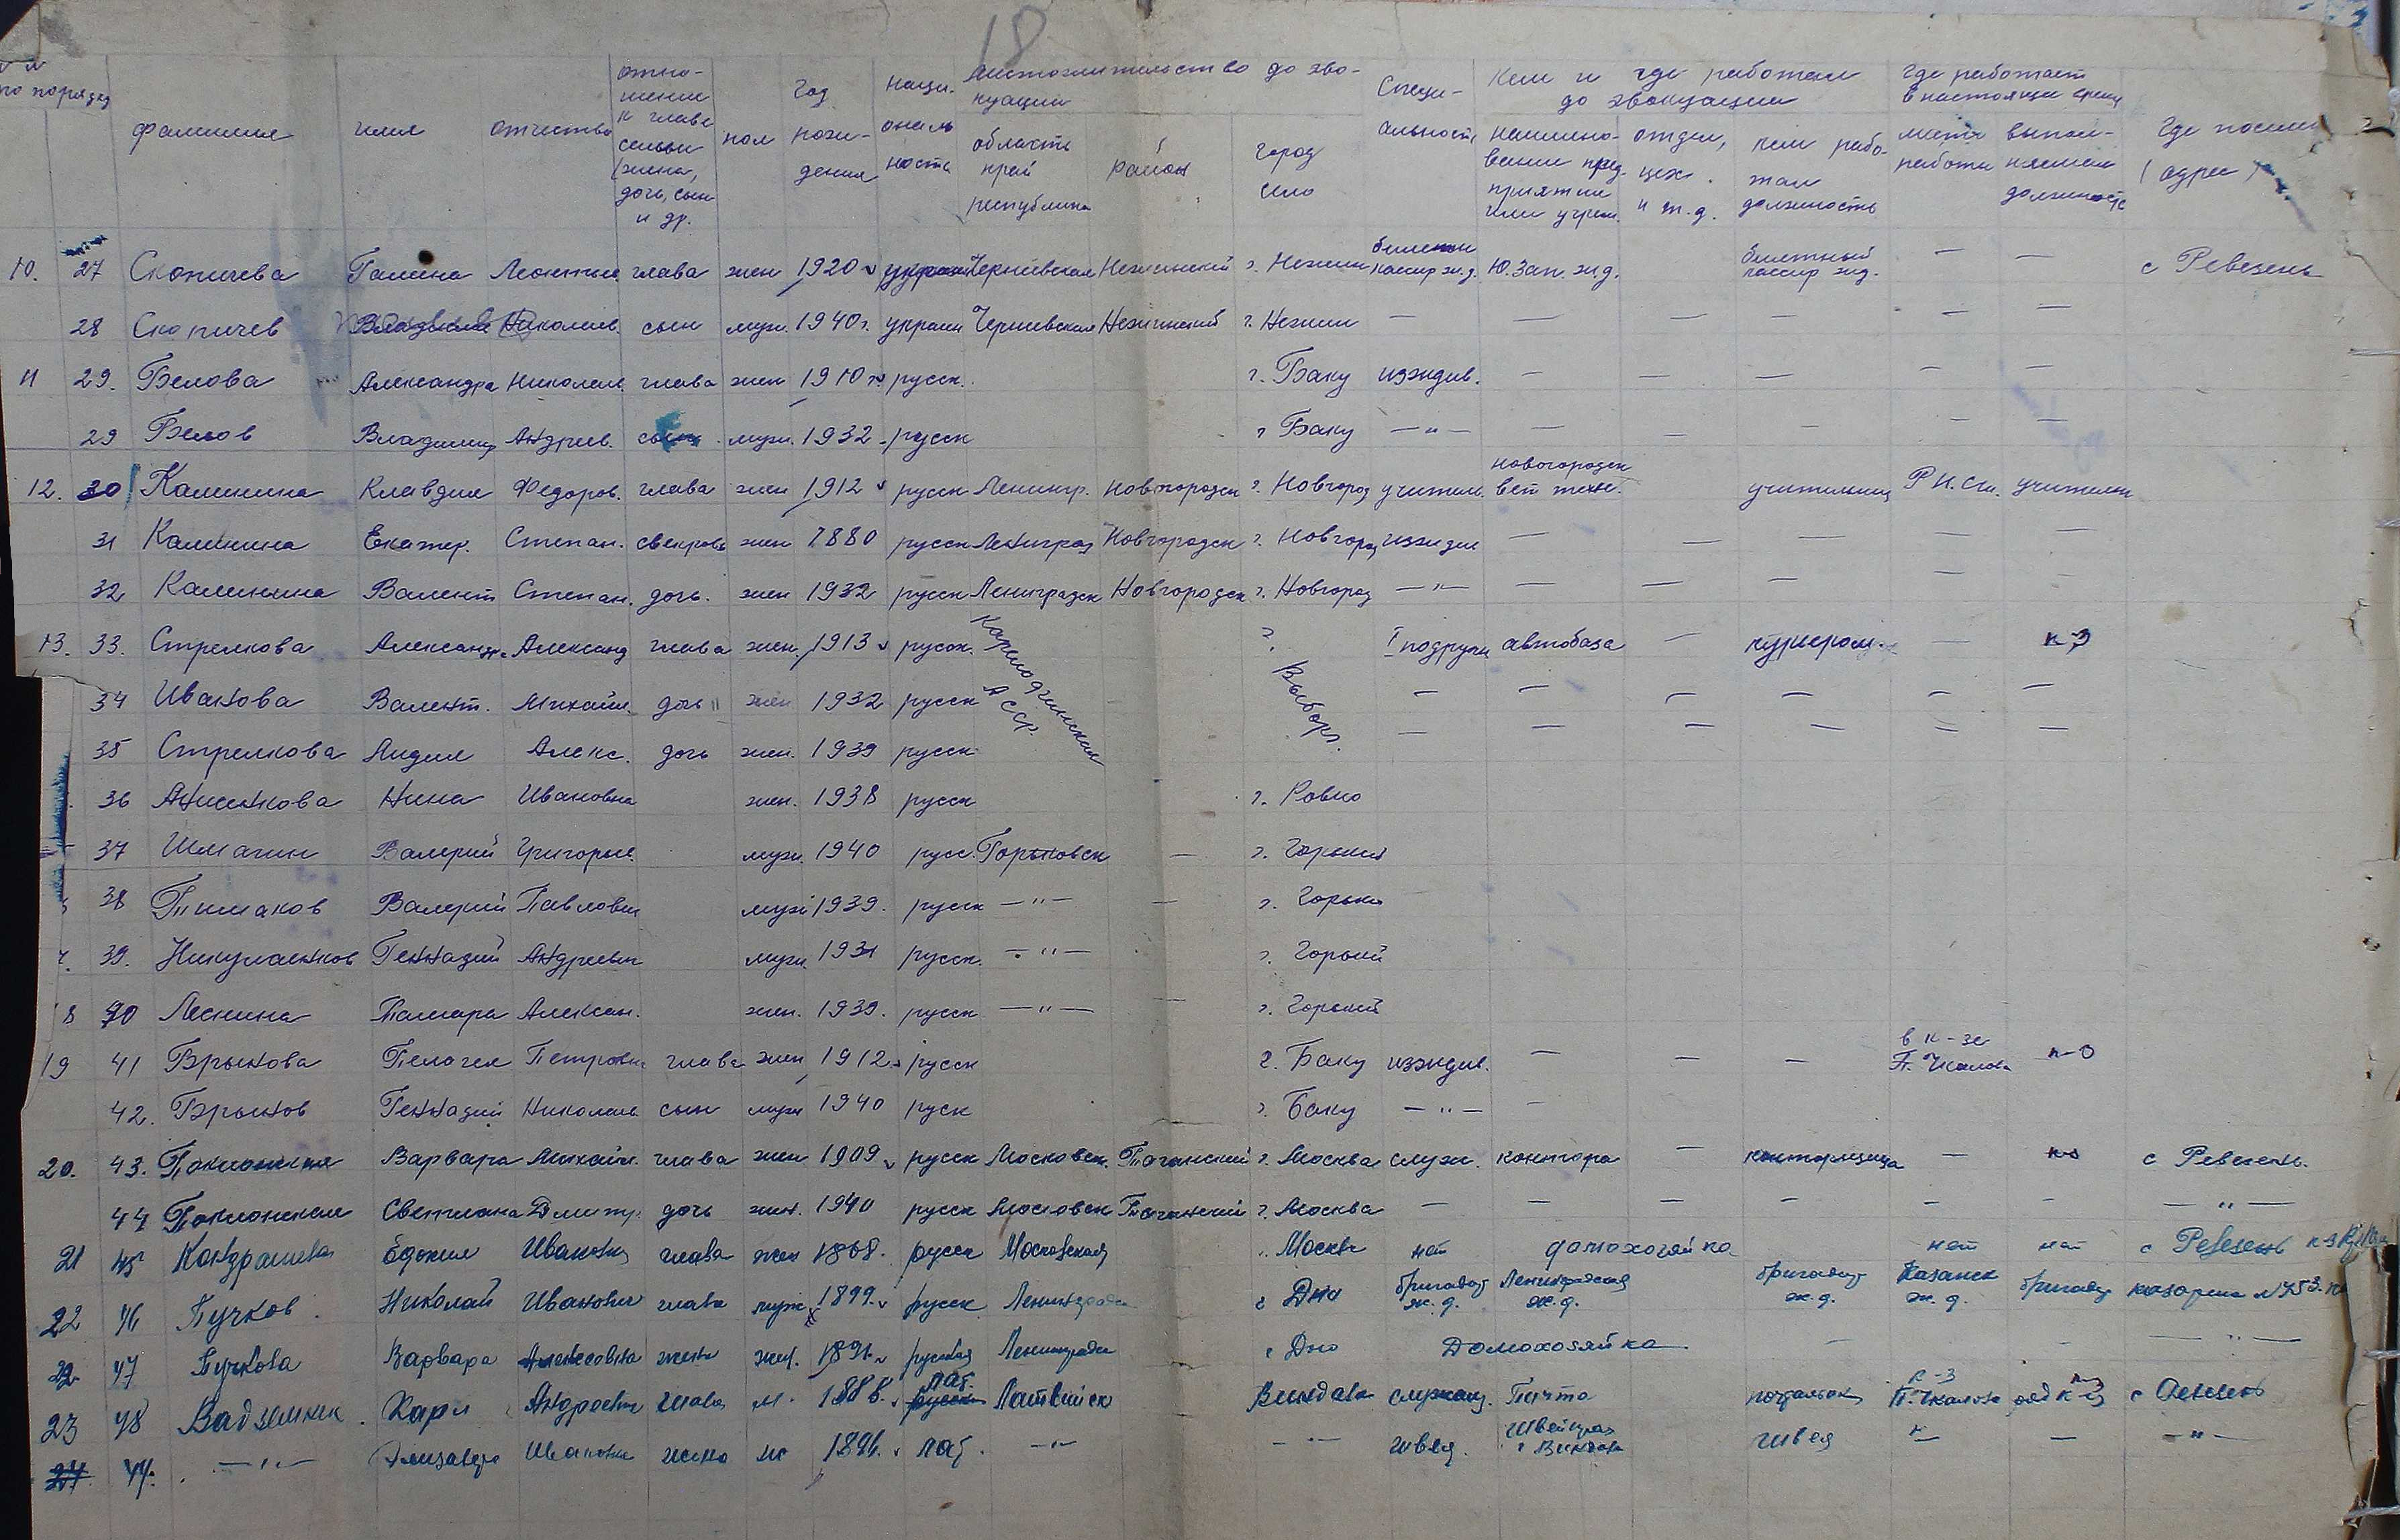 18
по порядку фамилия имя отчество отношение к главе семьи (жена, дочь, сын и др. пол год рождения национальность местожительство до эвакуации область край республика район город село Специальность Кем и где работал до эвакуации наименование предприятия или учреж. отдел, цех и т.д. кем работал должность где работает в настоящее время место работы выполняемая должность Где поселен (адрес)
10. 27 Скопичева Галина Леонтьев. глава жен 1920 Черниевская Нежинский г. Нежин кассир ж.д. Ю.Зап. ж.д. билетный кассир жд. — — с Ревезень
28 Скопичев Николаев. сын муж. 1940 г. украин Черниевская Нежинский г. Нежин — — — — — —
11 29. Белова Александра Николаев. глава жен 1910 г. русск. г. Баку иждив. — — — — —
29 Белов Владимир Андреев. сын муж. 1932 русск г Баку —"— — — — — —
12. 30 Калинина Клавдия Федоров. глава жен 1912 русск Ленингр. Новгородск г. Новгород учитель. новогородск вет техн. учительница учителем
31 Калинина Екатер. Степан. свекровь жен 1880 русск Ленинград Новгородск г. Новгород — — — — —
32 Калинина Валент Степан. дочь. жен 1932 русск Ленинградск Новгородск г. Новгород —"— — — — — —
13. 33. Стрелкова Александр. Александ глава жен 1913 русск. Карелофинская АССР. г. Выборг. автобаза — курьером — к-з
34 Иванова Валент. Михайл. дочь жен 1932 русск — — — — — —
35 Стрелкова Лидия Алекс. дочь жен. 1939 русск — — — — — —
36 Анисенкова Нина Ивановна жен. 1938 русск г. Ровно
37 Шмагин Валерий Григорьев. муж. 1940 русс. Горьковск — г. Горький
38 Тимаков Валерий Павлович муж 1939. русск —"— — г. Горьки
39. Геннадий Андреевич муж. 1931 русск. —"— г. Горький
18 40 Леснина Тамара Алексан. жен. 1939. русск —"— г. Горький
19 41 Брынова Пелагея Петровна глава жен 1912 русск г. Баку иждив. — — — в к-зе П. Чкалова к-з
42. Брынов Геннадий Николаев сын муж 1940 руск г. Баку —"— —
20. 43. Варвара Михайл. глава жен 1909 русск Московск. Таганский г. Москва служ. контора — конторщица — к-з с Ревезень.
44 Поклонская Светлана Дмитр. дочь жен. 1940 русск Московск Таганский г. Москва — — — — — — —"—
21 45 Кондрашева Евдокия Ивановна глава жен 1868. русск Московская Москва нет домохозяйка нет нет с Ревезень
22 46 Пучков Николай Иванович глава муж 1899 русск Ленинградск г Дно бригадир ж.д. Ленинградская ж.д. бригадир ж.д. Казанск ж.д. бригадир казарма
22 47 Пучкова Варвара жена жен. русская Ленинградск г Дно Домохозяйка — — — —"—
23 48 Карл Андреевич глава м. лат. русск Латвийск Виндава служащ. Почта почтальон к-з П. Чкалова ряд к-з с
24 —"— Елизавета Ивановна жена лат. —"— —"— швея. швея — — —"—